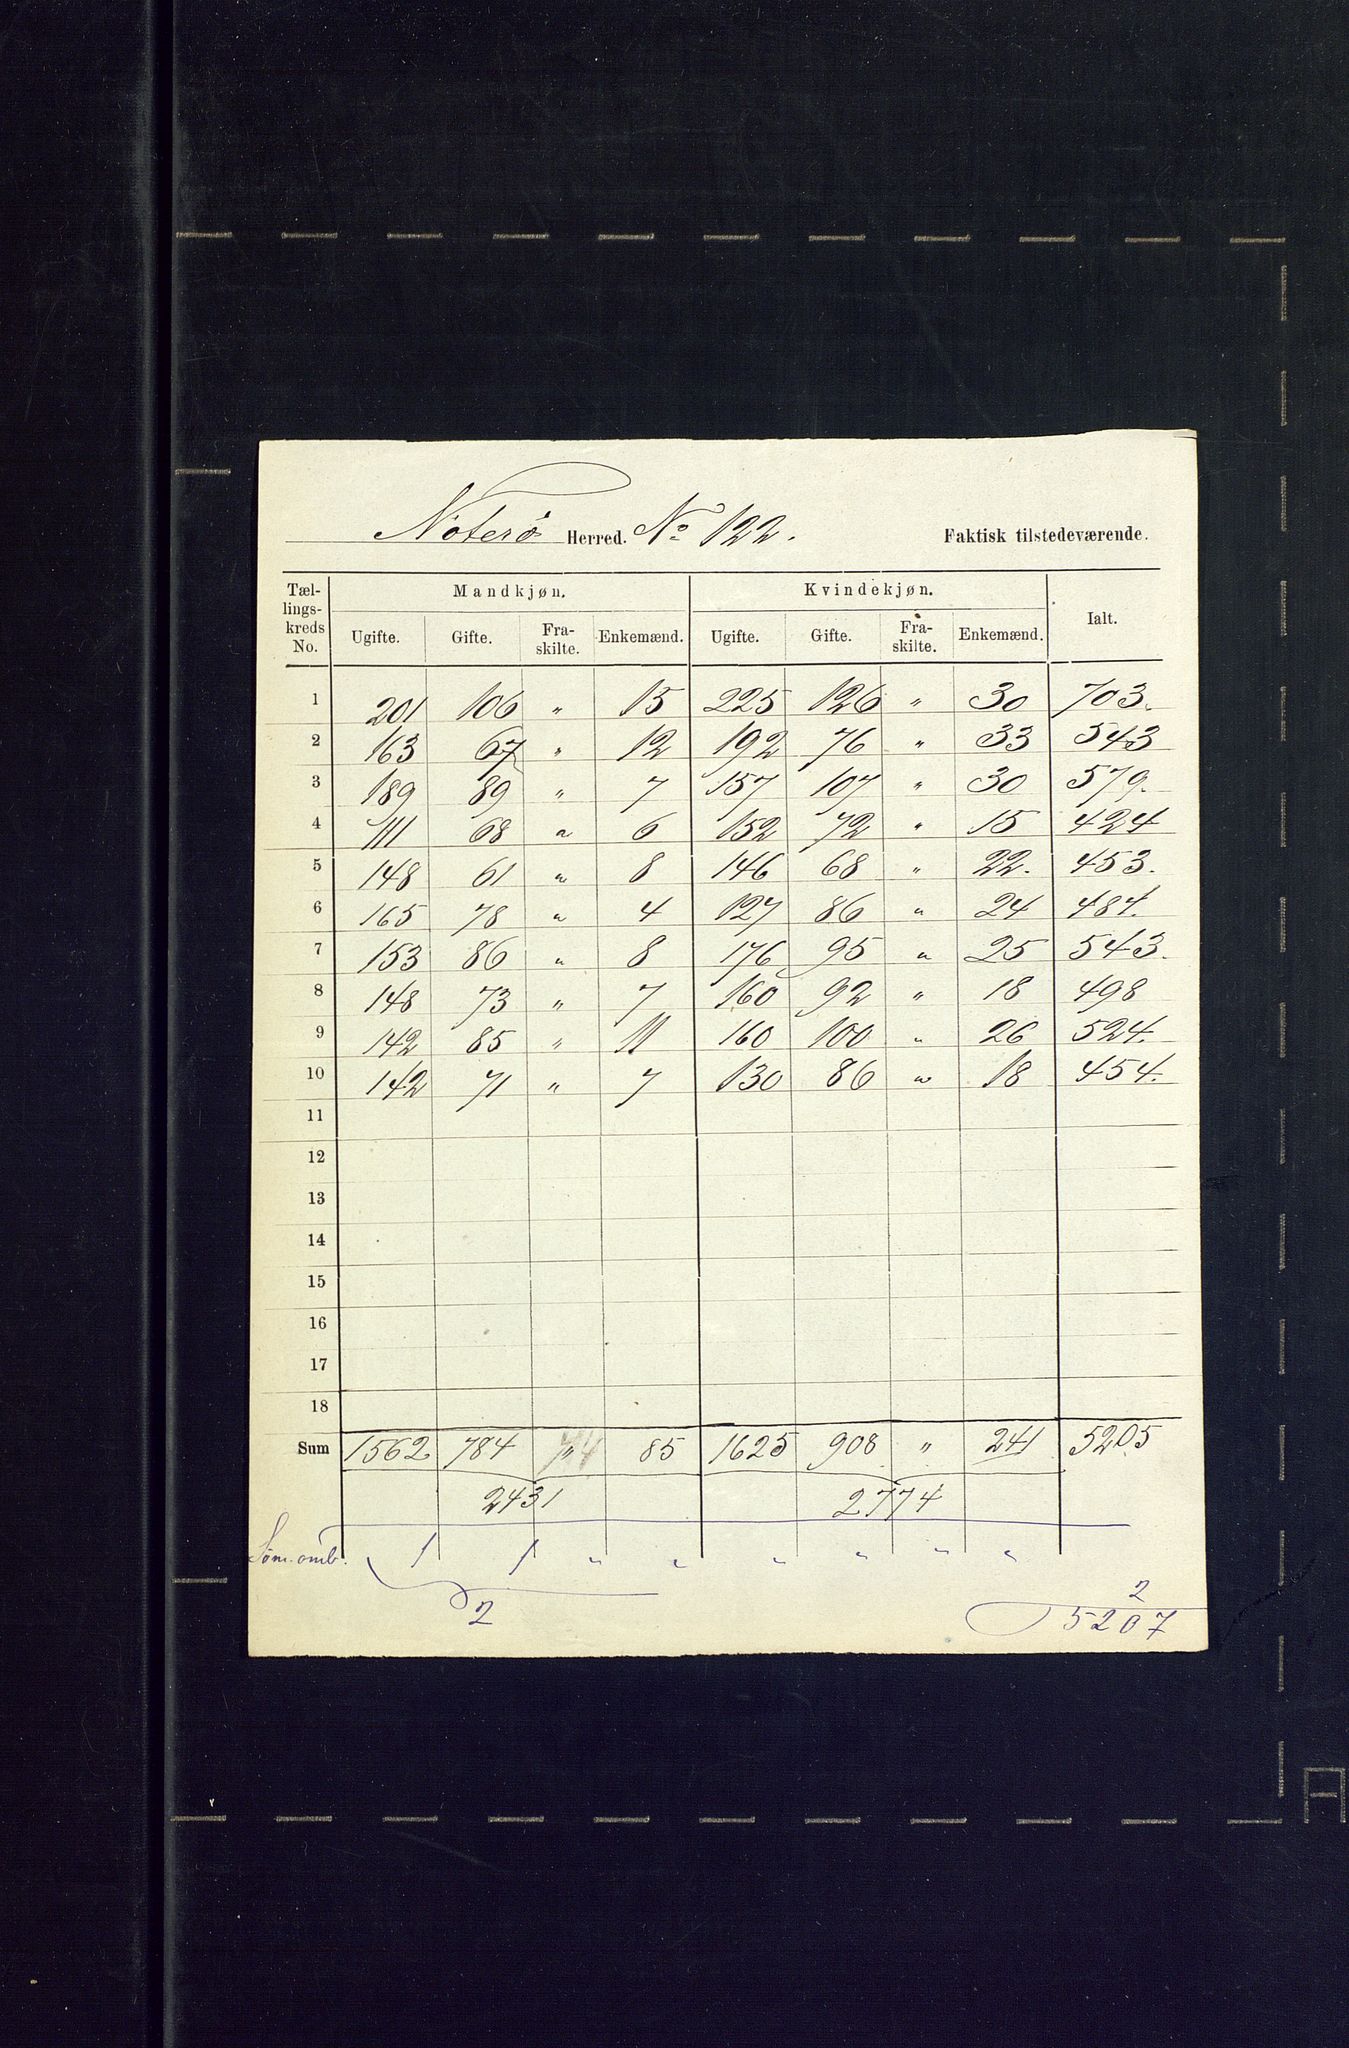 Nøterø Herred. No 122. Faktisk tilstedeværende.
Tællingskreds No. Mandkjøn. Kvindekjøn. Ialt.
Ugifte. Gifte. Fraskilte. Enkemænd. Ugifte. Gifte. Fraskilte. Enkemænd.
1 201 106 " 15 225 126 " 30 703.
2 163 67 " 12 192 76 " 33 543
3 189 89 " 7 157 107 " 30 579.
4 111 68 " 6 152 72 " 15 424
5 148 61 " 8 146 68 " 22. 453.
6 165 78 " 4 127 86 " 24 484.
7 153 86 " 8 176 95 " 25 543.
8 148 73 " 7 160 92 " 18 498
9 142 85 " 11 160 100 " 26 524.
10 142 71 " 7 130 86 " 18 454.
11
12
13
14
15
16
17
18
Sum 1562 784 " 85 1625 908 " 241 5205
2431 2774
Søm. omb. 1 1 " " " " " "
2 2
5207
A